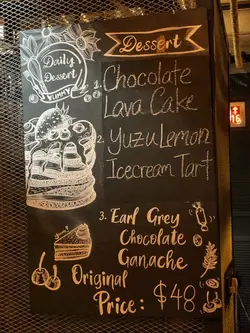 Daily
Dessert
YUMMY
Dessert
1. Chocolate
Lava Cake
2. Yuzu Lemon
Icecream Tart
3. Earl Grey
Chocolate
Ganache
Original
Price: $48